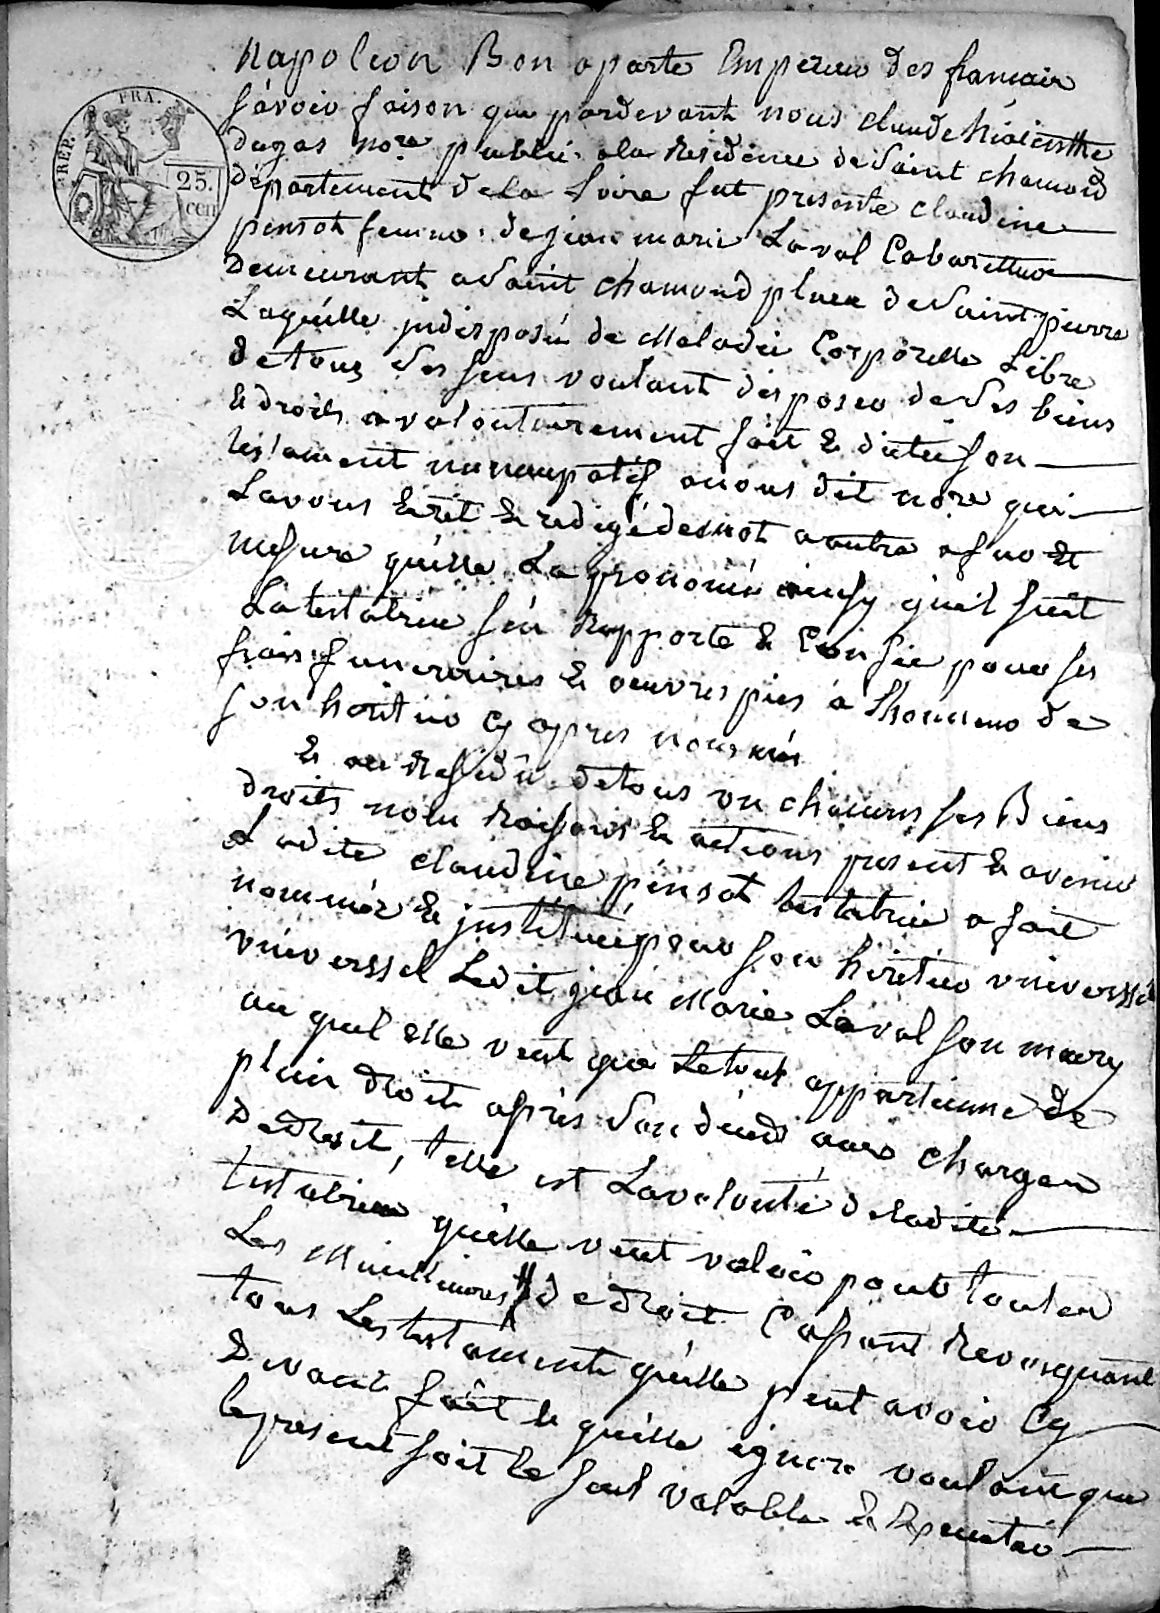 Napoleon Bonaparte Empereur des francais
sçavoir faison que pardevant nous claude hiacinthe
REP. FRA.
25.
cen
dugas no.re public a la residence de Saint chamond
département de la Loire fut presente claudine
pensot femme de jean marie Laval Cabaretier
demeurant a Saint chamond place de Saint pierre
Laquelle indisposée de Maladie Corporelle Libre
de tous Ses sens voulant disposer de Ses biens
& droits a volontairement fait & dicté son
testament nuncupatif a nous dit no.re qui
Lavons Ecrit & redigé de mot a autre a fur &
mesure qu'elle La prononcé ainsy quil suit
La testatrice sen Rapporte & Confie pour ses
frais funeraires & oeuvres pies à Lhonneur de
son héritier cy apres nommé
& au Residu de tous un chacuns ses Biens
droits noms Raisons & actions present & avenir
Ladite claudine pensot testatrice a fait
nommé & justitué pour son héritier universsel
universsel Ledit jean Marie Laval son mary
au quel elle veut que Le tout appartienne de
plein droit après Son décéd aux charges
de droit, telle est La volonté de ladite
testatrice qu'elle veut valoir pour toutes
Les Meilleures # de droit Cassant Revoquant
tous Les testament quelle peut avoir cy
devant fait & quelle ignore voulant que
le present soit le seul valable & Executée